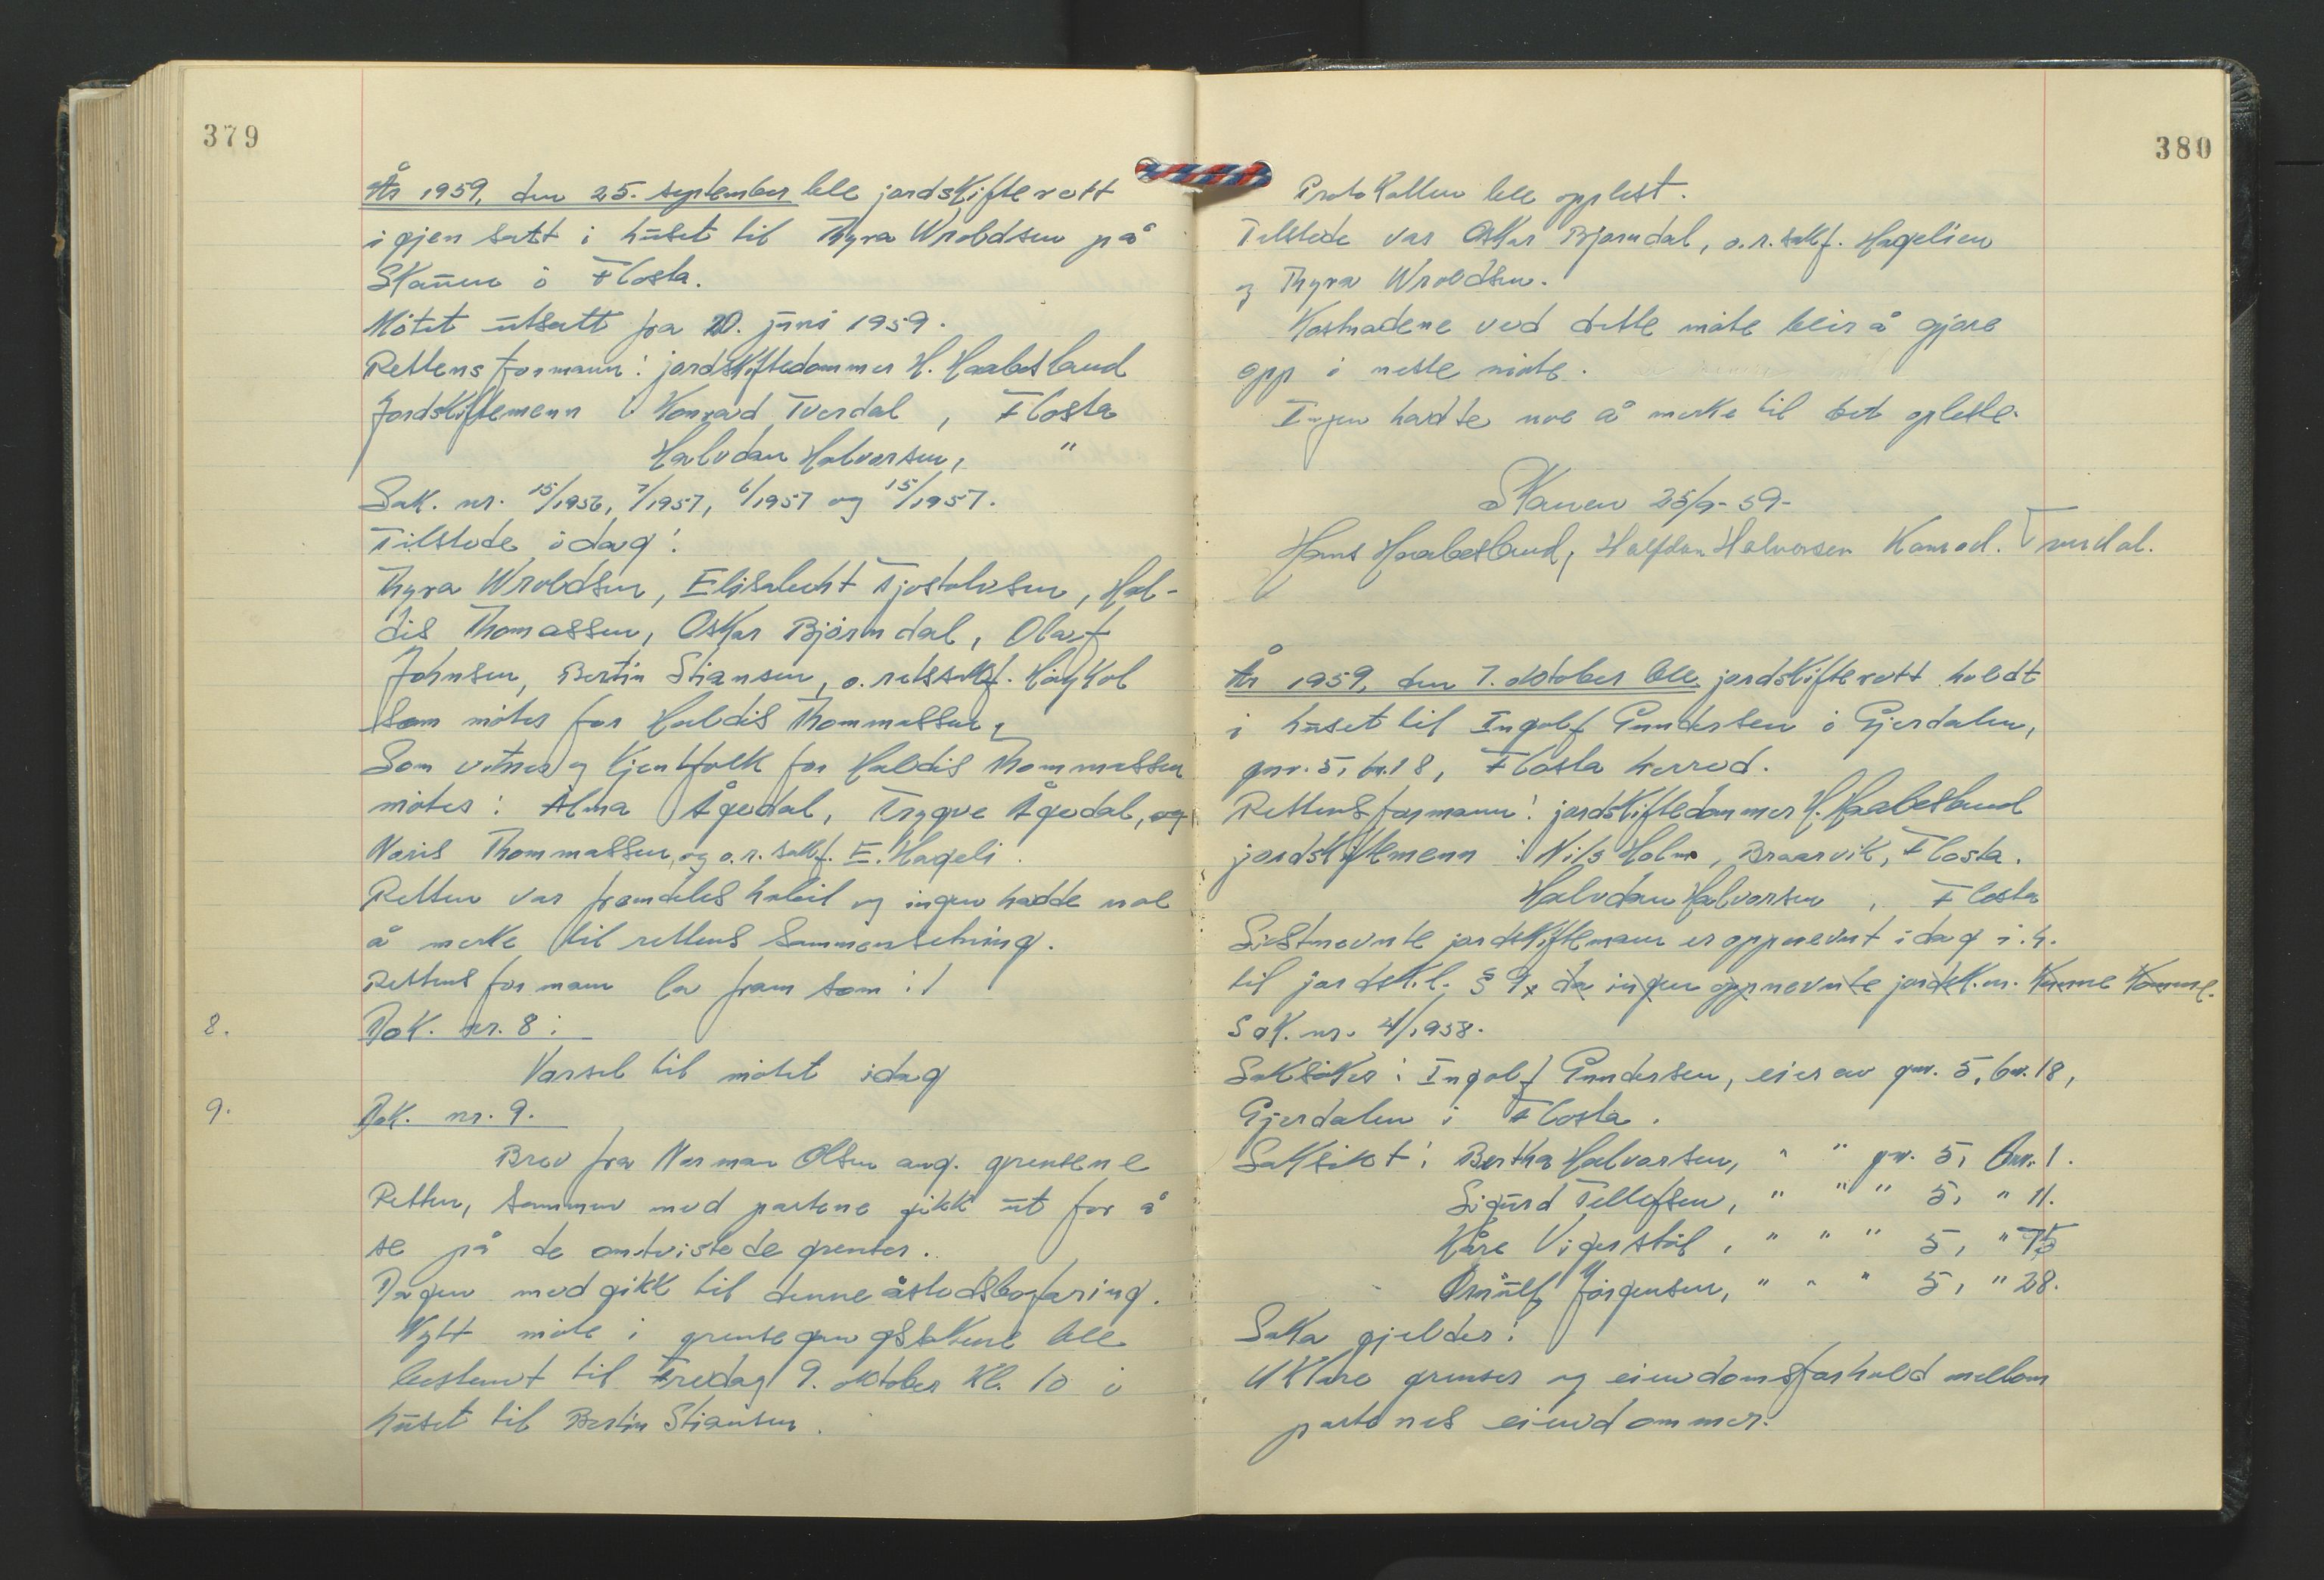 379
År 1959, den 25. september ble jordskifterett
igjen satt i huset til Thyra Wroldsen på
Skaren i Flosta.
Møtet utsatt fra 20. juni 1959.
Rettens formann: jordskiftedommer H. Haabesland
Jordskiftemenn: Konrad Tverdal, Flosta
Halvdan Halvorsen, "
Sak. nr. 15/1956, 7/1957, 6/1957 og 15/1957.
Tilstede idag:
Thyra Wroldsen, Elisabeht Tjostolvsen, Hal-
dis Thomassen, Oskar Bjørndal, Olaf
Johnsen, Bertin Stiansen, o.retssakf. Haukøl
som møter for Haldis Thommassen,
Som vitner og kjentfolk for Haldis Thommassen
møter: Alma Ågedal, Trygve Ågedal, og
Noris Thommassen, og o.r. sakf. E. Hageli.
Retten var fremdeles habil og ingen hadde noe
å merke til rettens sammensetning.
Rettens formann la fram som:
8. Dok. nr. 8:
Varsel til møtet idag
9. Dok. nr. 9.
Brev fra Norman Olsen ang. grensene
Retten, sammen med partene gikk ut for å
se på de omtvistede grenser.
Dagen medgikk til denne åstedsbefaring.
Nytt møte i grensegangssakene ble
bestemt til Fredag 9. oktober kl. 10 i
huset til Bertin Stiansen.
380
Protokollen ble opplest.
Tilstede var Oskar Bjørndal, o.r.sakf. Hagelien
og Thyra Wroldsen.
Kostnadene ved dette møte blir å gjøre
opp i neste møte.
Ingen hadde noe å merke til det opleste.
Skaren 25/9-59-
Hans Haabesland, Halfdan Halvorsen Konrad. Tverdal.
År 1959, den 7. oktober ble jordskifterett holdt
i huset til Ingolf Gundersen i Gjerdalen,
gnr. 5, bnr. 18, Flosta herred.
Rettens formann: jordskiftedommer H. Haabesland
jordskiftemenn: Nils Holm, Braarvik, Flosta.
Halvdan Halvorsen, Flosta
Sistnevnte jordskiftemann er oppnevnt idag i.h.
til jordsk.l. § 9, da ingen oppnevnte jordsk.m. kunne komme.
Sak. nr. 4/1958.
Saksøker: Ingolf Gundersen, eier av gnr. 5, bnr. 18,
Gjerdalen i Flosta.
Saksøkt: Bertha Halvorsen, " " gnr. 5, bnr. 1.
Sigurd Tellefsen, " " " 5, " 11.
Kåre Vigerstøl, " " " 5, " 75
Jørgensen, " " " 5, " 28.
Saka gjelder:
Uklare grenser og eiendomsforhold mellom
partenes eiendommer.